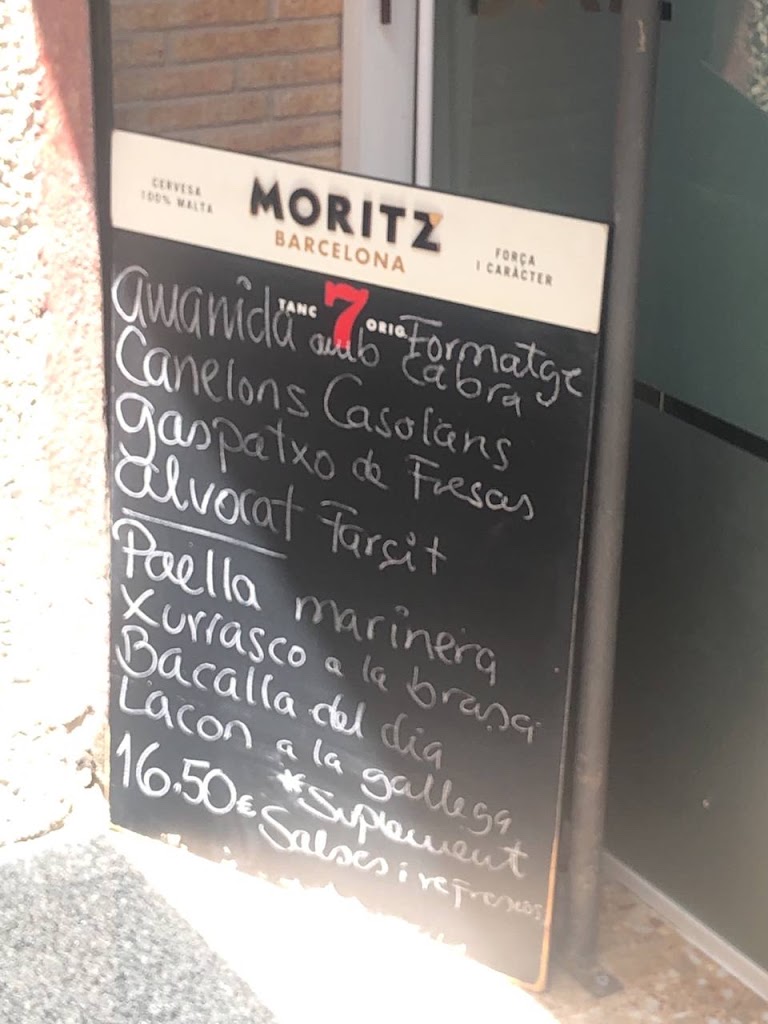 CERVESA
100% MALTA
MORITZ
BARCELONA
FORÇA
I CARÀCTER
TANC 7 ORIG.
amanida amb Formatge
cabra
Canelons Casolans
gaspatxo de Fresas
alvocat Farcit
Paella marinera
Xurrasco a la brasa
Bacalla del dia
Lacon a la gallega
16.50€ *Suplement
Salses i refrescos